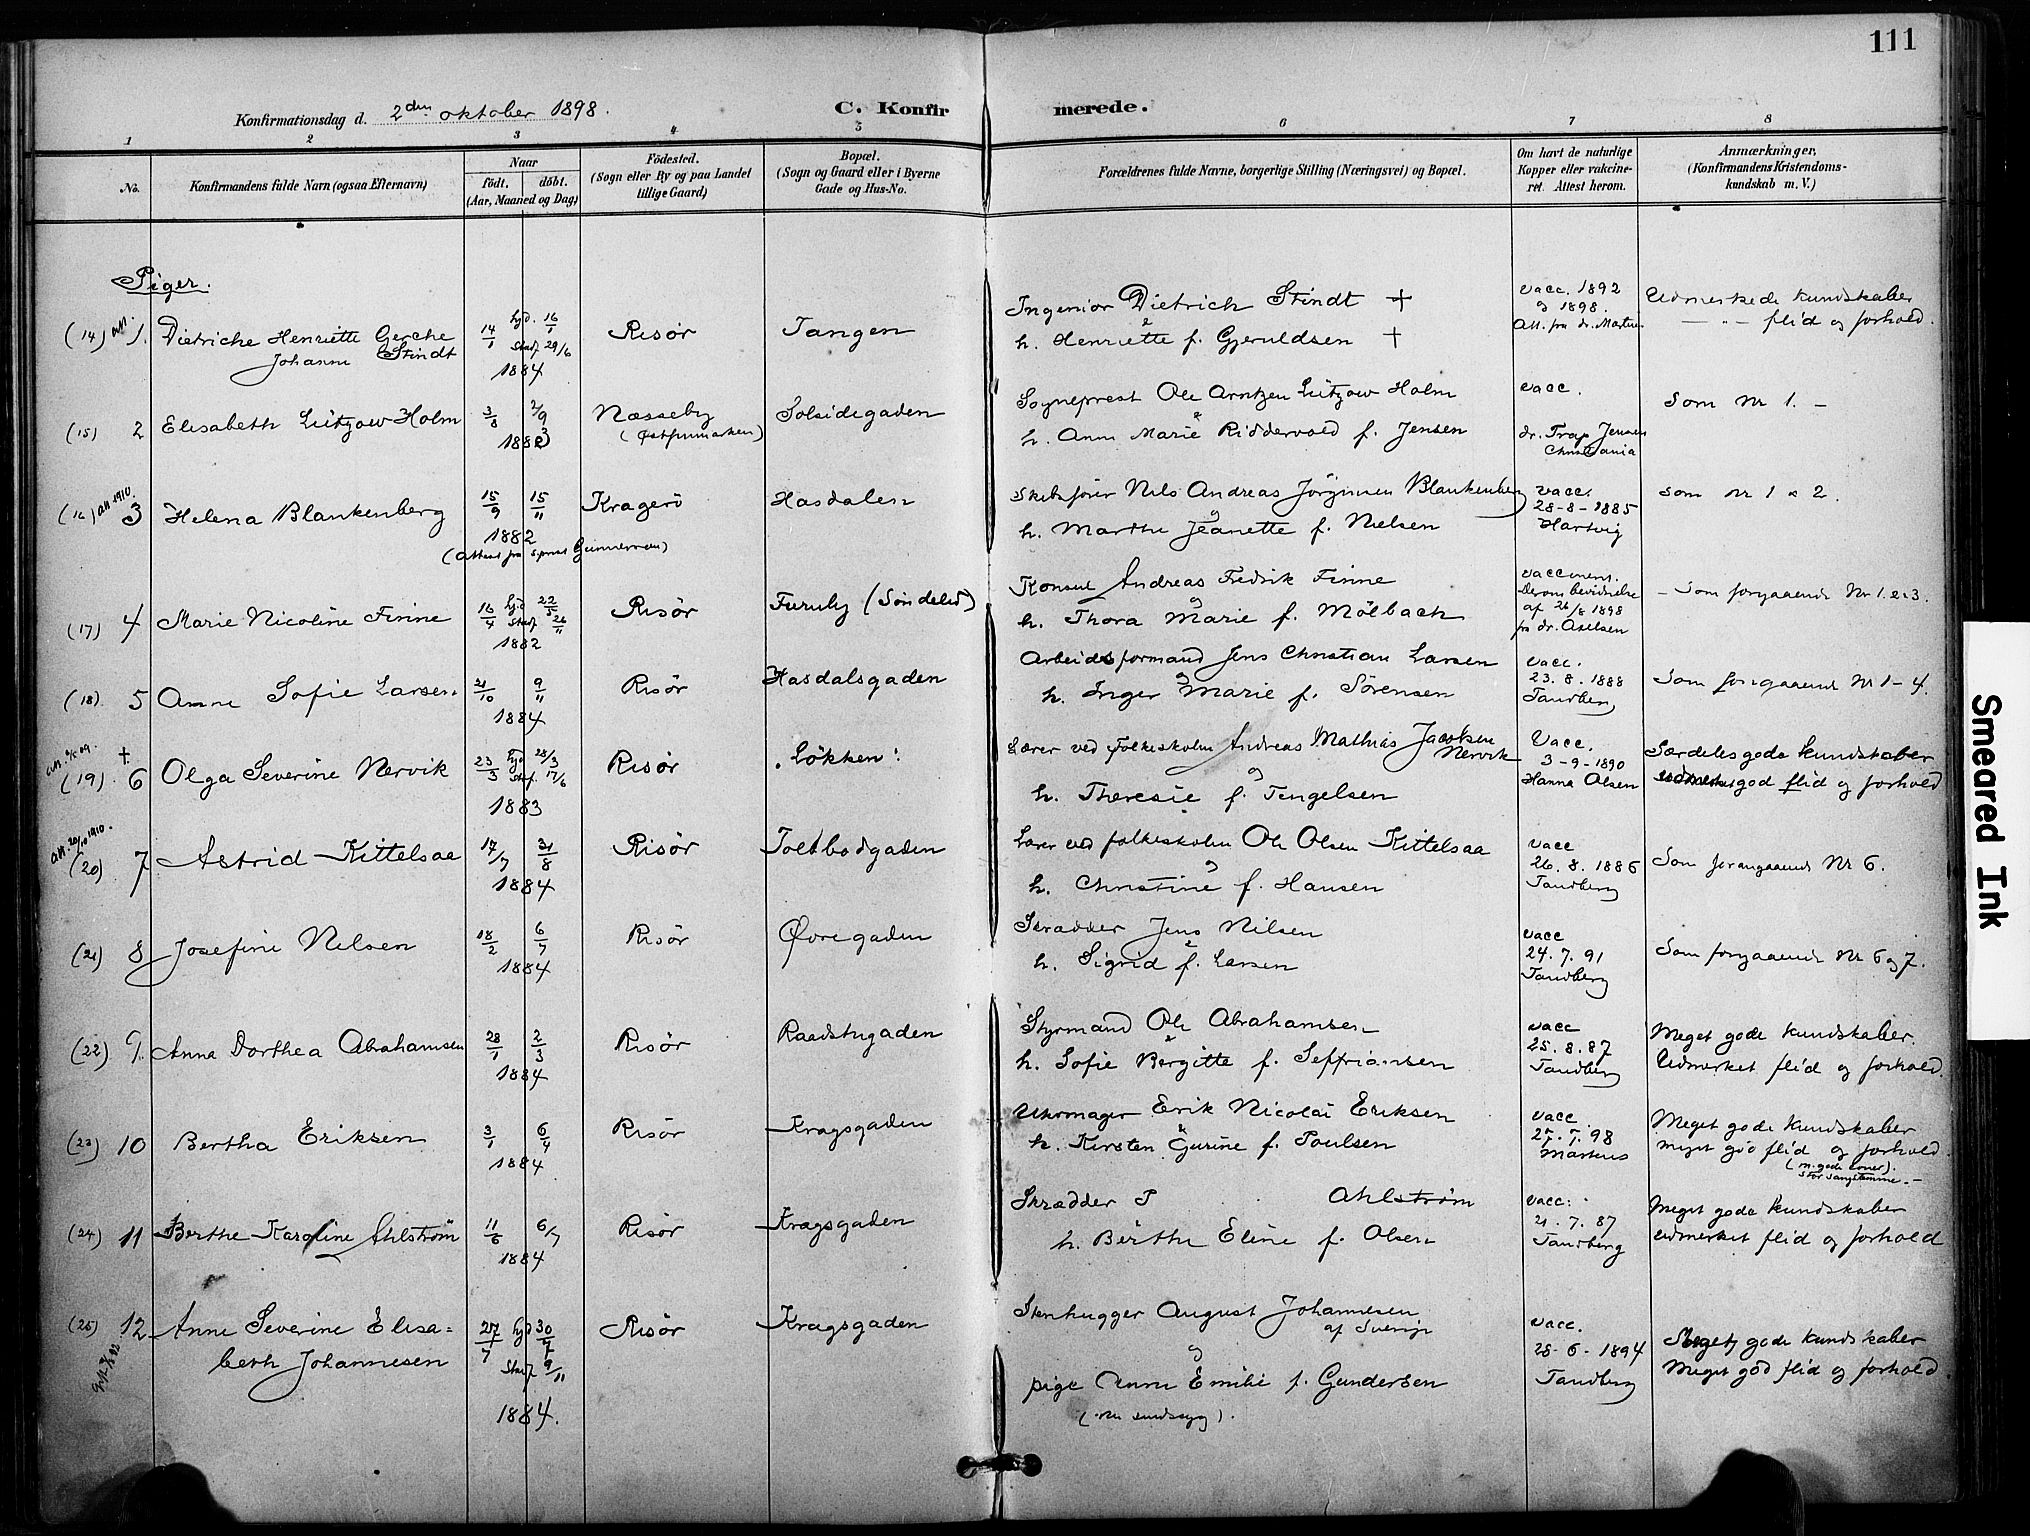 111
Konfirmationsdag d. 2den oktober 1898.
C. Konfirmerede.
1 2 3 4 5 6 7 8
No.
Konfirmandens fulde Navn (ogsaa Efternavn)
Naar
födt. döbt.
(Aar, Maaned og Dag)
Födested.
(Sogn eller By og paa Landet
tillige Gaard)
Bopæl.
(Sogn og Gaard eller i Byerne
Gade og Hus-No.
Forældrenes fulde Navne, borgerlige Stilling (Næringsvei) og Bopæl.
Om havt de naturlige
Kopper eller vakcine-
ret. Attest herom.
Anmærkninger,
(Konfirmandens Kristendoms-
kundskab m. V.)
Piger.
(14) att. 1. Dietriche Henriette Gerche
Johanne Stindt
14/1 hjd. 16/1
Stadf. 29/6
1884
Risør
Tangen
Ingeniør Dietrich Stindt †
&
h. Henriette f. Gjeruldsen †
vacc. 1892
og 1898.
Att. fra dr. Martens
Udmerkede kundskaber
— " — flid og forhold.
(15) 2 Elisabeth Lützow-Holm
3/8 2/9
1883
Næsseby
(Østfinmarken)
Solsidegaden
Sogneprest Ole Arntzen Lützow Holm
&
h. Anna Marie Riddervold f. Jensen
vacc.
dr. Trap Jensen
Christiania
Som Nr 1. -
(16) att 1910. 3 Helena Blankenberg
15/9 15/11
1882
Kragerö
Hasdalen
Skibsfører Nils Andreas Jörginsen Blankenberg
og
h. Marthe Jeanette f. Nielsen
vacc.
28-8-1885
Hartvig
som Nr 1 & 2.
(17) 4 Marie Nicoline Finne
16/4 hjd 22/5
Stadf. 26/11
1882
Risør
Furuly (Søndeled)
Konsul Andreas Fredrik Finne
og
h. Thora Marie f. Mölbach
vaccineret.
Derom bevidnelse
af 26/8 1898
fra dr. Axelsen
- Som forgaaende Nr 1. 2. 3.
(18) 5 Anne Sofie Larsen.
21/10 9/11
1884
Risør
Hasdalsgaden
Arbeidsformand Jens Christian Larsen
og
h. Inger Marie f. Sörensen
vacc.
23. 8. 1888
Tandberg
Som forgaaende Nr 1-4.
(19) † 6 Olga Severine Nervik
23/3 hjd 28/3
Stadf. 17/6
1883
Risør
"Lökken"
Lærer ved folkeskolen Andreas Mathias Jacobsen
Nervik
og
h. Theresie f. Tengelsen
Vacc.
3-9-1890
Hanna Olsen
Særdeles gode kundskaber
god flid og forhold
(20) 7 Astrid Kittelsaa
17/7 31/8
1884
Risør
Toldbodgaden
Lærer ved folkeskolen Ole Olsen Kittelsaa
og
h. Christine f. Hansen
vacc
26. 8. 1886
Tandberg
Som forangaaende Nr 6.
(21) 8 Josefine Nilsen
18/2 6/7
1884
Risør
Øvregaden
Skrædder Jens Nilsen
&
h. Sigrid f. Larsen
vacc
24. 7. 91
Tandberg
Som forgaaende Nr 6 og 7.
(22) 9. Anna Dorthea Abrahamsen
28/1 2/3
1884
Risør
Raadstugaden
Styrmand Ole Abrahamsen
&
h. Sofie Bergitte f. Seffriansen
vacc
25. 8. 87
Tandberg
Meget gode kundskaber.
Udmerket flid og forhold.
(23) 10 Bertha Eriksen
3/1 6/4
1884
Risør
Kragsgaden
Uhrmager Erik Nicolai Eriksen
&
h. Kirsten Gurine f. Poulsen
vacc
27. 7. 98
Martens
Meget gode kundskaber
meget god flid og forhold.
(m. gode evner).
Stor sangstemme. -
(24) 11 Berthe Karoline Ahlström
11/6 6/7
1884
Risør
Kragsgaden
Skrædder P Ahlström
h. Berthe Eline f. Olsen
vacc:
21. 7. 87
Tandberg
Meget gode kundskaber
udmerket flid og forhold
(25) 12 Anne Severine Elisa=
beth Johannesen
27/7 hjd 30/7
Stadf 9/11
1884.
Risør
Kragsgaden
Stenhugger August Johannesen
af Sverige
og
pige Anna Emilie f. Gundersen
vacc.
28-6-1894
Tandberg
Meget gode kundskaber
Meget god flid og forhold
Smeared Ink